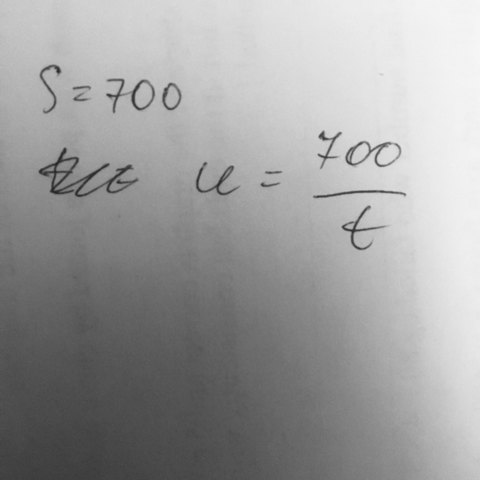 S = 700
u = 700 / t